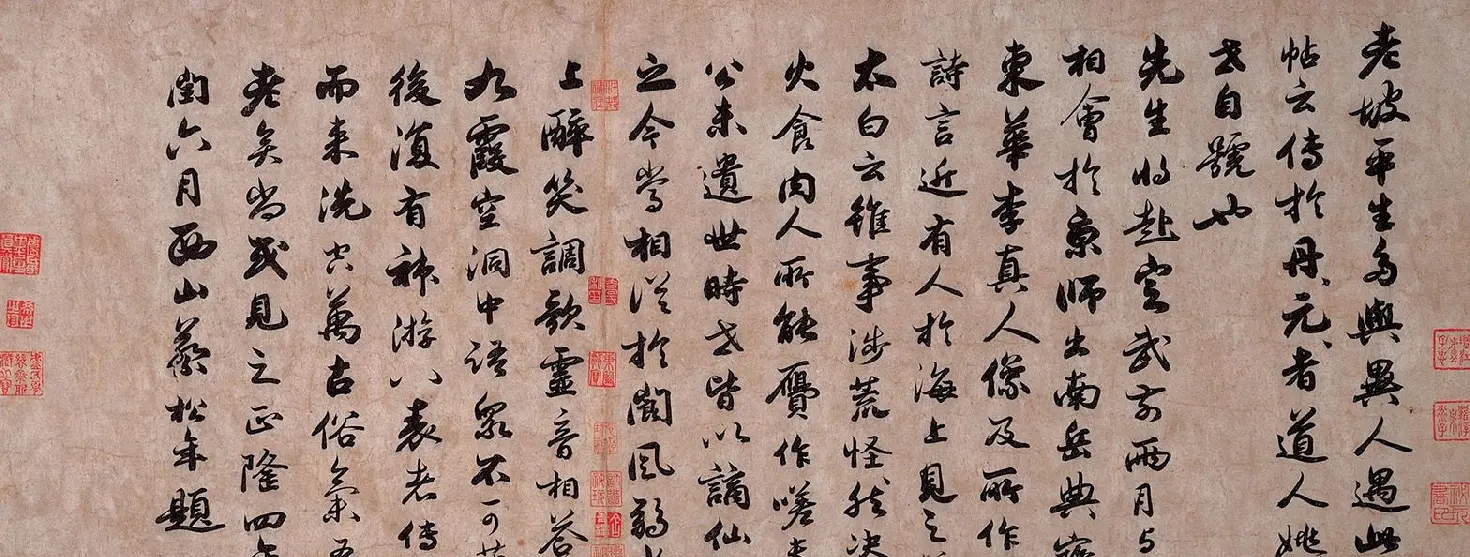 老坡平生多與異人遇此
帖云傳於丹元者道人姚
世自號也
先生將赴定武前兩月与
相會於京師出南岳典寶
東華李真人像及所作
詩言近有人於海上見之
太白云雖事涉荒怪然決
火食肉人所能贋作嗟
公未遺世時世皆以謫仙
之今當相從於閬風弱
上醉笑調歌靈音相答
九霞空洞中語衆不可
後復有神游八表者傳
而來洗空萬古俗氣吾
老矣尚或見之正隆四年
閏六月西山蔡松年題